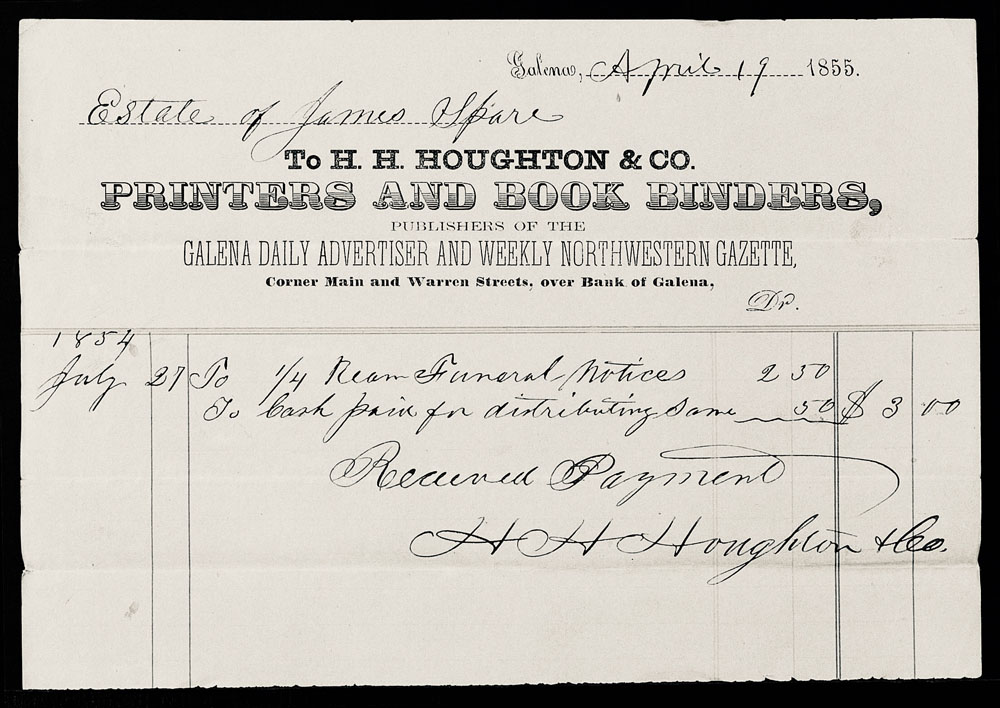 Galena, April 19 1855.
Estate of James Spare
To H. H. HOUGHTON & CO.
PRINTERS AND BOOK BINDERS,
PUBLISHERS OF THE
GALENA DAILY ADVERTISER AND WEEKLY NORTHWESTERN GAZETTE,
Corner Main and Warren Streets, over Bank of Galena,
Dr.
1854
July 27 To 1/4 Ream Funeral Notices 2 50
To Cash paid for distributing Same 50 $ 3 00
Received Payment
H H Houghton & Co.